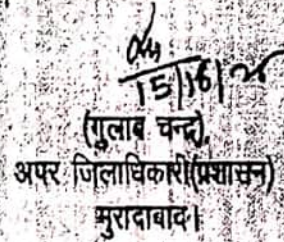 15/16/24
(गुलाब चन्द्र),
अपर जिलाधिकारी(प्रशासन)
मुरादाबाद।